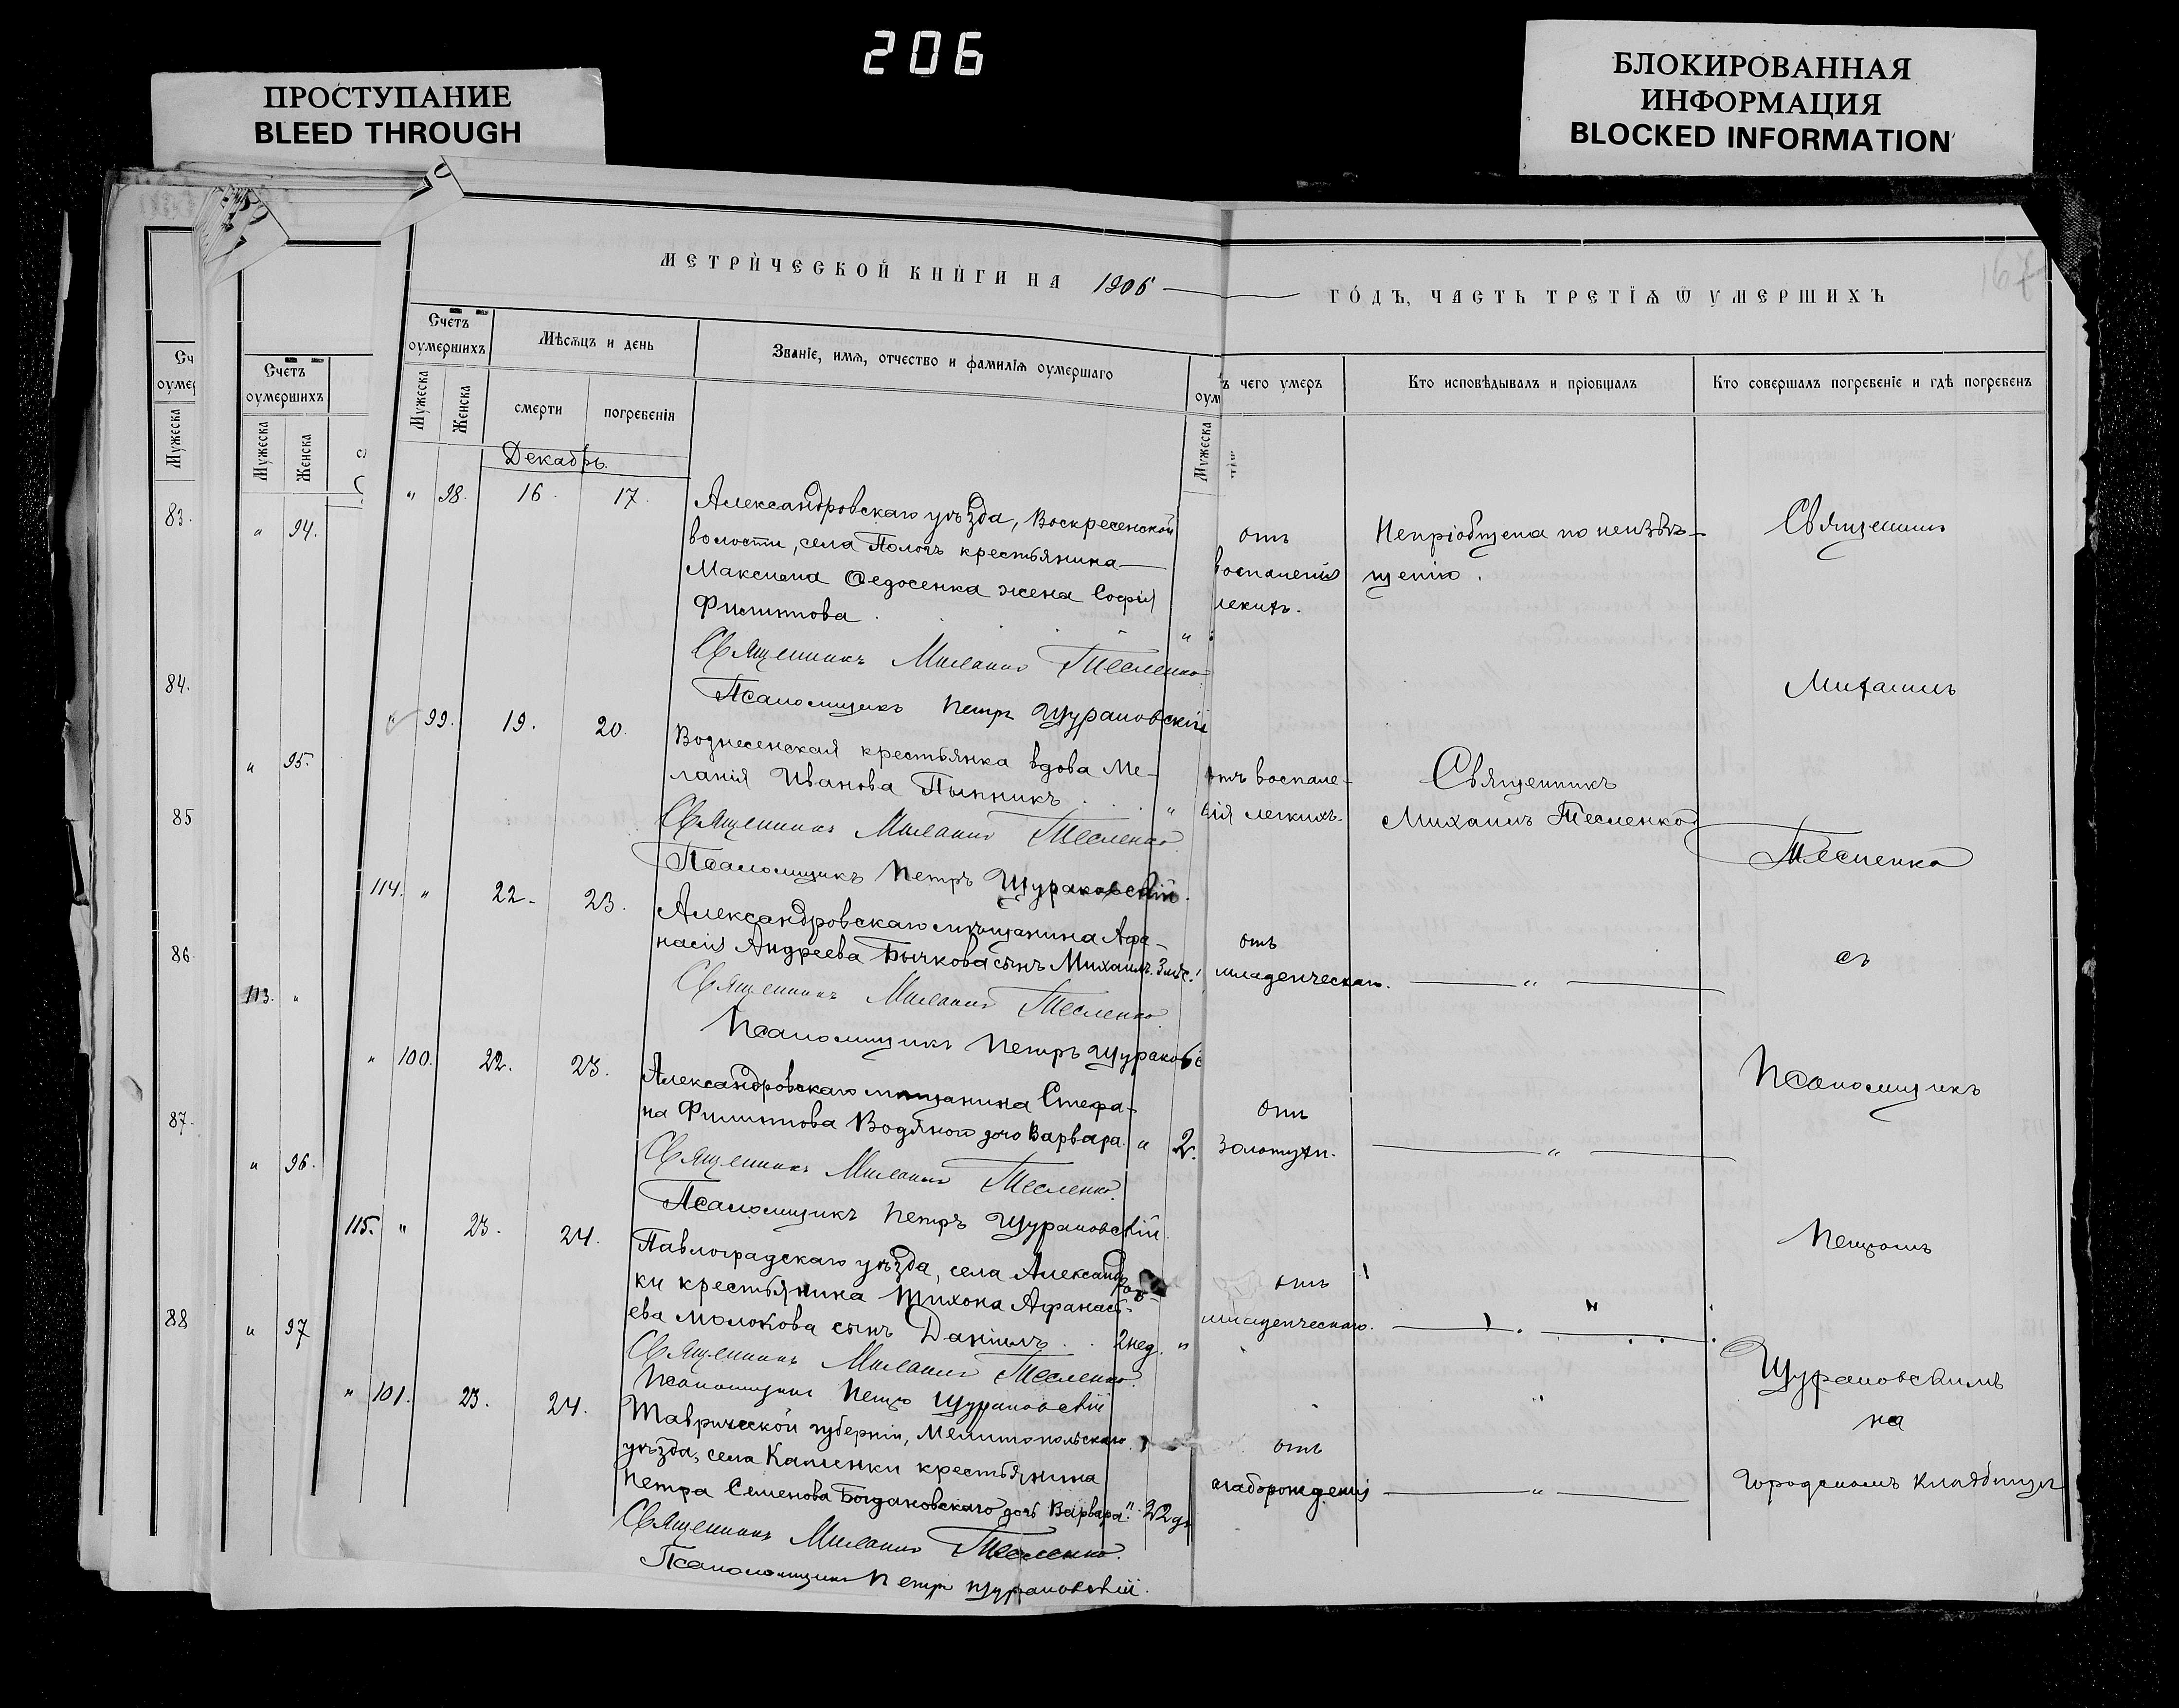 206
ПРОСТУПАНИЕ
BLEED THROUGH
БЛОКИРОВАННАЯ
ИНФОРМАЦИЯ
BLOCKED INFORMATION
МЕТРИЧЕСКОЙ КНИГИ НА 1906
ГОДЪ, ЧАСТЬ ТРЕТІѦ Ѿ УМЕРШИХЪ
167
Счетъ оумершихъ
Мѣсѧцъ и день
Званіе, имѧ, отчество и фамиліѧ оумершаго
оум
ъ чего умеръ
Кто исповѣдывалъ и пріобщалъ
Кто совершалъ погребеніе и гдѣ погребенъ
Мужеска
Женска
смерти
погребеніѧ
Мужеска
Сч
оумер
Мужеска
Счетъ
оумершихъ
Мужеска
Женска
83.
84.
85
86
87
88
" 94.
" 95.
113. "
" 96.
" 97
Декабрь.
" 98. 16. 17.
Александровскаго уѣзда, Воскресенской
волости, села Пологъ крестьянина
Максима Ѳедосенка жена Софія
Филиппова
"
отъ
воспаленія
легкихъ.
Непріобщена по неизвѣ-
щенію.
Священникъ Михаилъ Тесленко
Псаломщикъ Петръ Щураковскій
" 99. 19. 20.
Вознесенская крестьянка вдова Ме-
ланія Иванова Пыпникъ
"
отъ воспале-
нія легкихъ.
Священникъ
Михаилъ Тесленко
Священникъ Михаилъ Тесленко
Псаломщикъ Петръ Щураковскій.
114. " 22. 23.
Александровскаго мѣщанина Афа-
насія Андреева Бычкова сынъ Михаилъ. 3 мѣс.
отъ
младенческаго.
"
Священникъ Михаилъ Тесленко
Псаломщикъ Петръ Щураковс
" 100. 22. 23.
Александровскаго мѣщанина Стефа-
на Филиппова Водяного дочь Варвара. " 2.
отъ
золотухи.
"
Священникъ Михаилъ Тесленко.
Псаломщикъ Петръ Щураковскій.
115. " 23. 24.
Павлоградскаго уѣзда, села Александров-
ки крестьянина Тихона Афанась-
ева Молокова сынъ Даніилъ . . 2 нед. "
отъ
младенческаго.
"
Священникъ Михаилъ Тесленко.
Псаломщикъ Петръ Щураковскій
" 101. 23. 24.
Таврической губерніи, Мелитопольскаго
уѣзда, села Каменки крестьянина
Петра Семенова Богдановскаго дочь Варвара " 22 дн
отъ
слаборожденія
"
Священникъ Михаилъ Тесленко.
Псаломщикъ Петръ Щураковскій.
Священникъ
Михаилъ
Тесленко
съ
Псаломщикъ
Петромъ
Щураковскимъ
на
городскомъ кладбищѣ